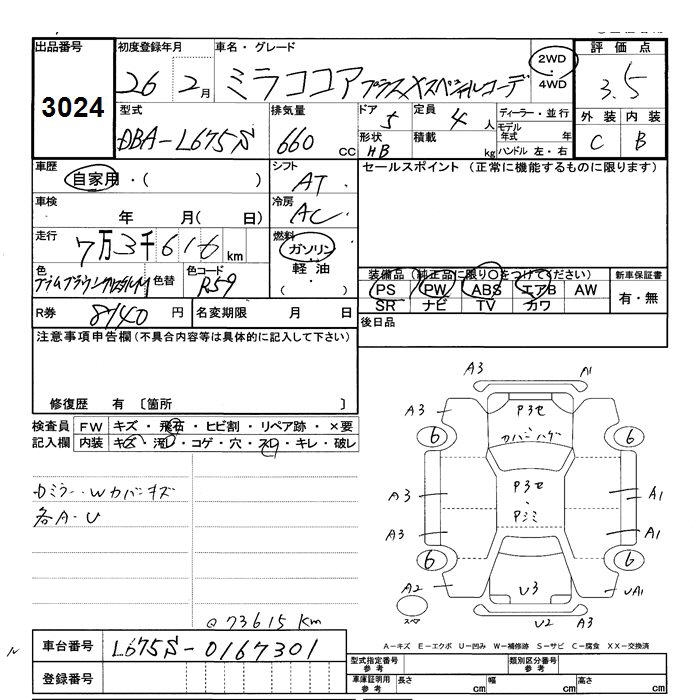 出品番号 初度登録年月 車名・グレード 2WD・4WD 評価点
3024 26年2月 ミラココア プラスXスペシャルコーデ 3.5
型式 排気量 ドア 定員 ディーラー・並行 外装 内装
DBA-L675S 660 CC 5 4人 モデル年式 年 C B
形状 積載 ハンドル 左・右
HB kg
車歴 シフト セールスポイント (正常に機能するものに限ります)
自家用・( ) AT
車検 冷房
年 月( 日) AC
走行 燃料
7万3千616km ガソリン・軽油・( )
色 色替 色コード 装備品 (純正品に限り○をつけてください) 新車保証書
R59 PS PW ABS エアB AW 有・無
SR ナビ TV カワ
R券 8140円 名変期限 月 日 後日品
注意事項申告欄 (不具合内容等は具体的に記入して下さい)
修復歴 有 〔箇所 〕
検査員 FW キズ・飛石・ヒビ割・リペア跡・×要
記入欄 内装 キズ・汚・コゲ・穴・スレ・キレ・破レ
Dミラー・Wカバーキズ
各A・U
@73615km
A3 A1
A3 P3セ
カバーハゲ
6 6
P3セ・Pシミ
A3 A1
A3 A1
6 6
A2 U3 UA1
スペア U2 A3
A-キズ E-エクボ U-凹み W-補修跡 S-サビ C-腐食 XX-交換済
車台番号 L675S-0167301
型式指定番号 参考 類別区分番号 参考
登録番号 車庫証明用 参考 長さ cm 幅 cm 高さ cm